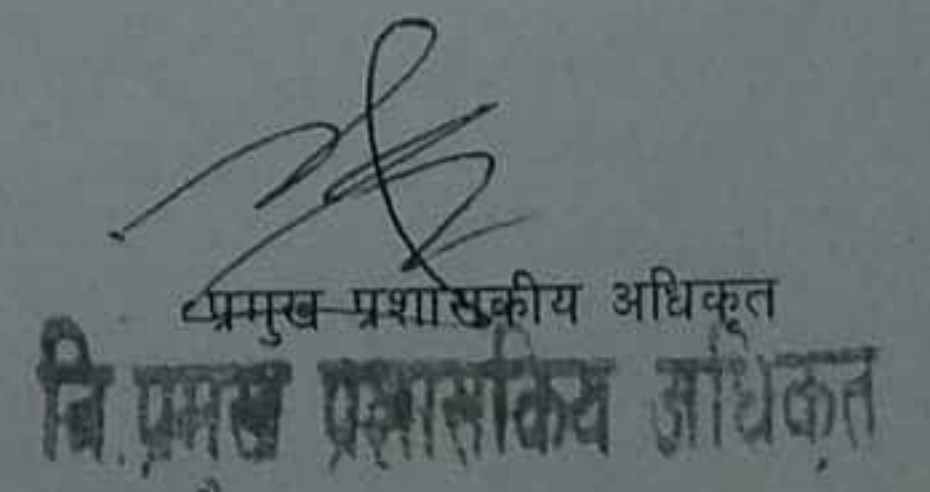 प्रमुख प्रशासकीय अधिकृत
नि.प्रमुख प्रशासकिय अधिकृत